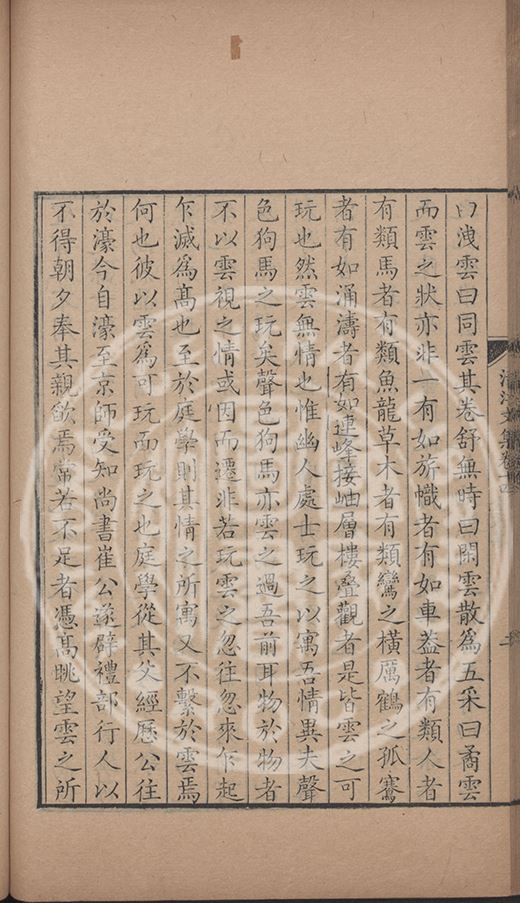 曰洩雲曰同雲其卷舒無時曰閑雲散為五采曰矞雲
而雲之狀亦非一有如旂幟者有如車葢者有類人者
有類馬者有類魚龍草木者有類鸞之橫厲鶴之孤騫
者有如涌濤者有如連峰接岫層樓疊觀者是皆雲之可
玩也然雲無情也惟幽人處士玩之以寓吾情異夫聲
色狗馬之玩矣聲色狗馬亦雲之過吾前耳物於物者
不以雲視之情或因而遷非若玩雲之忽往忽來乍起
乍滅為髙也至於庭學則其情之所寓又不繫於雲焉
何也彼以雲為可玩而玩之也庭學從其父經歷公往
於濠今自濠至京師受知尚書崔公遂辟禮部行人以
不得朝夕奉其親歉焉常若不足者憑髙眺望雲之所
文集卷十四